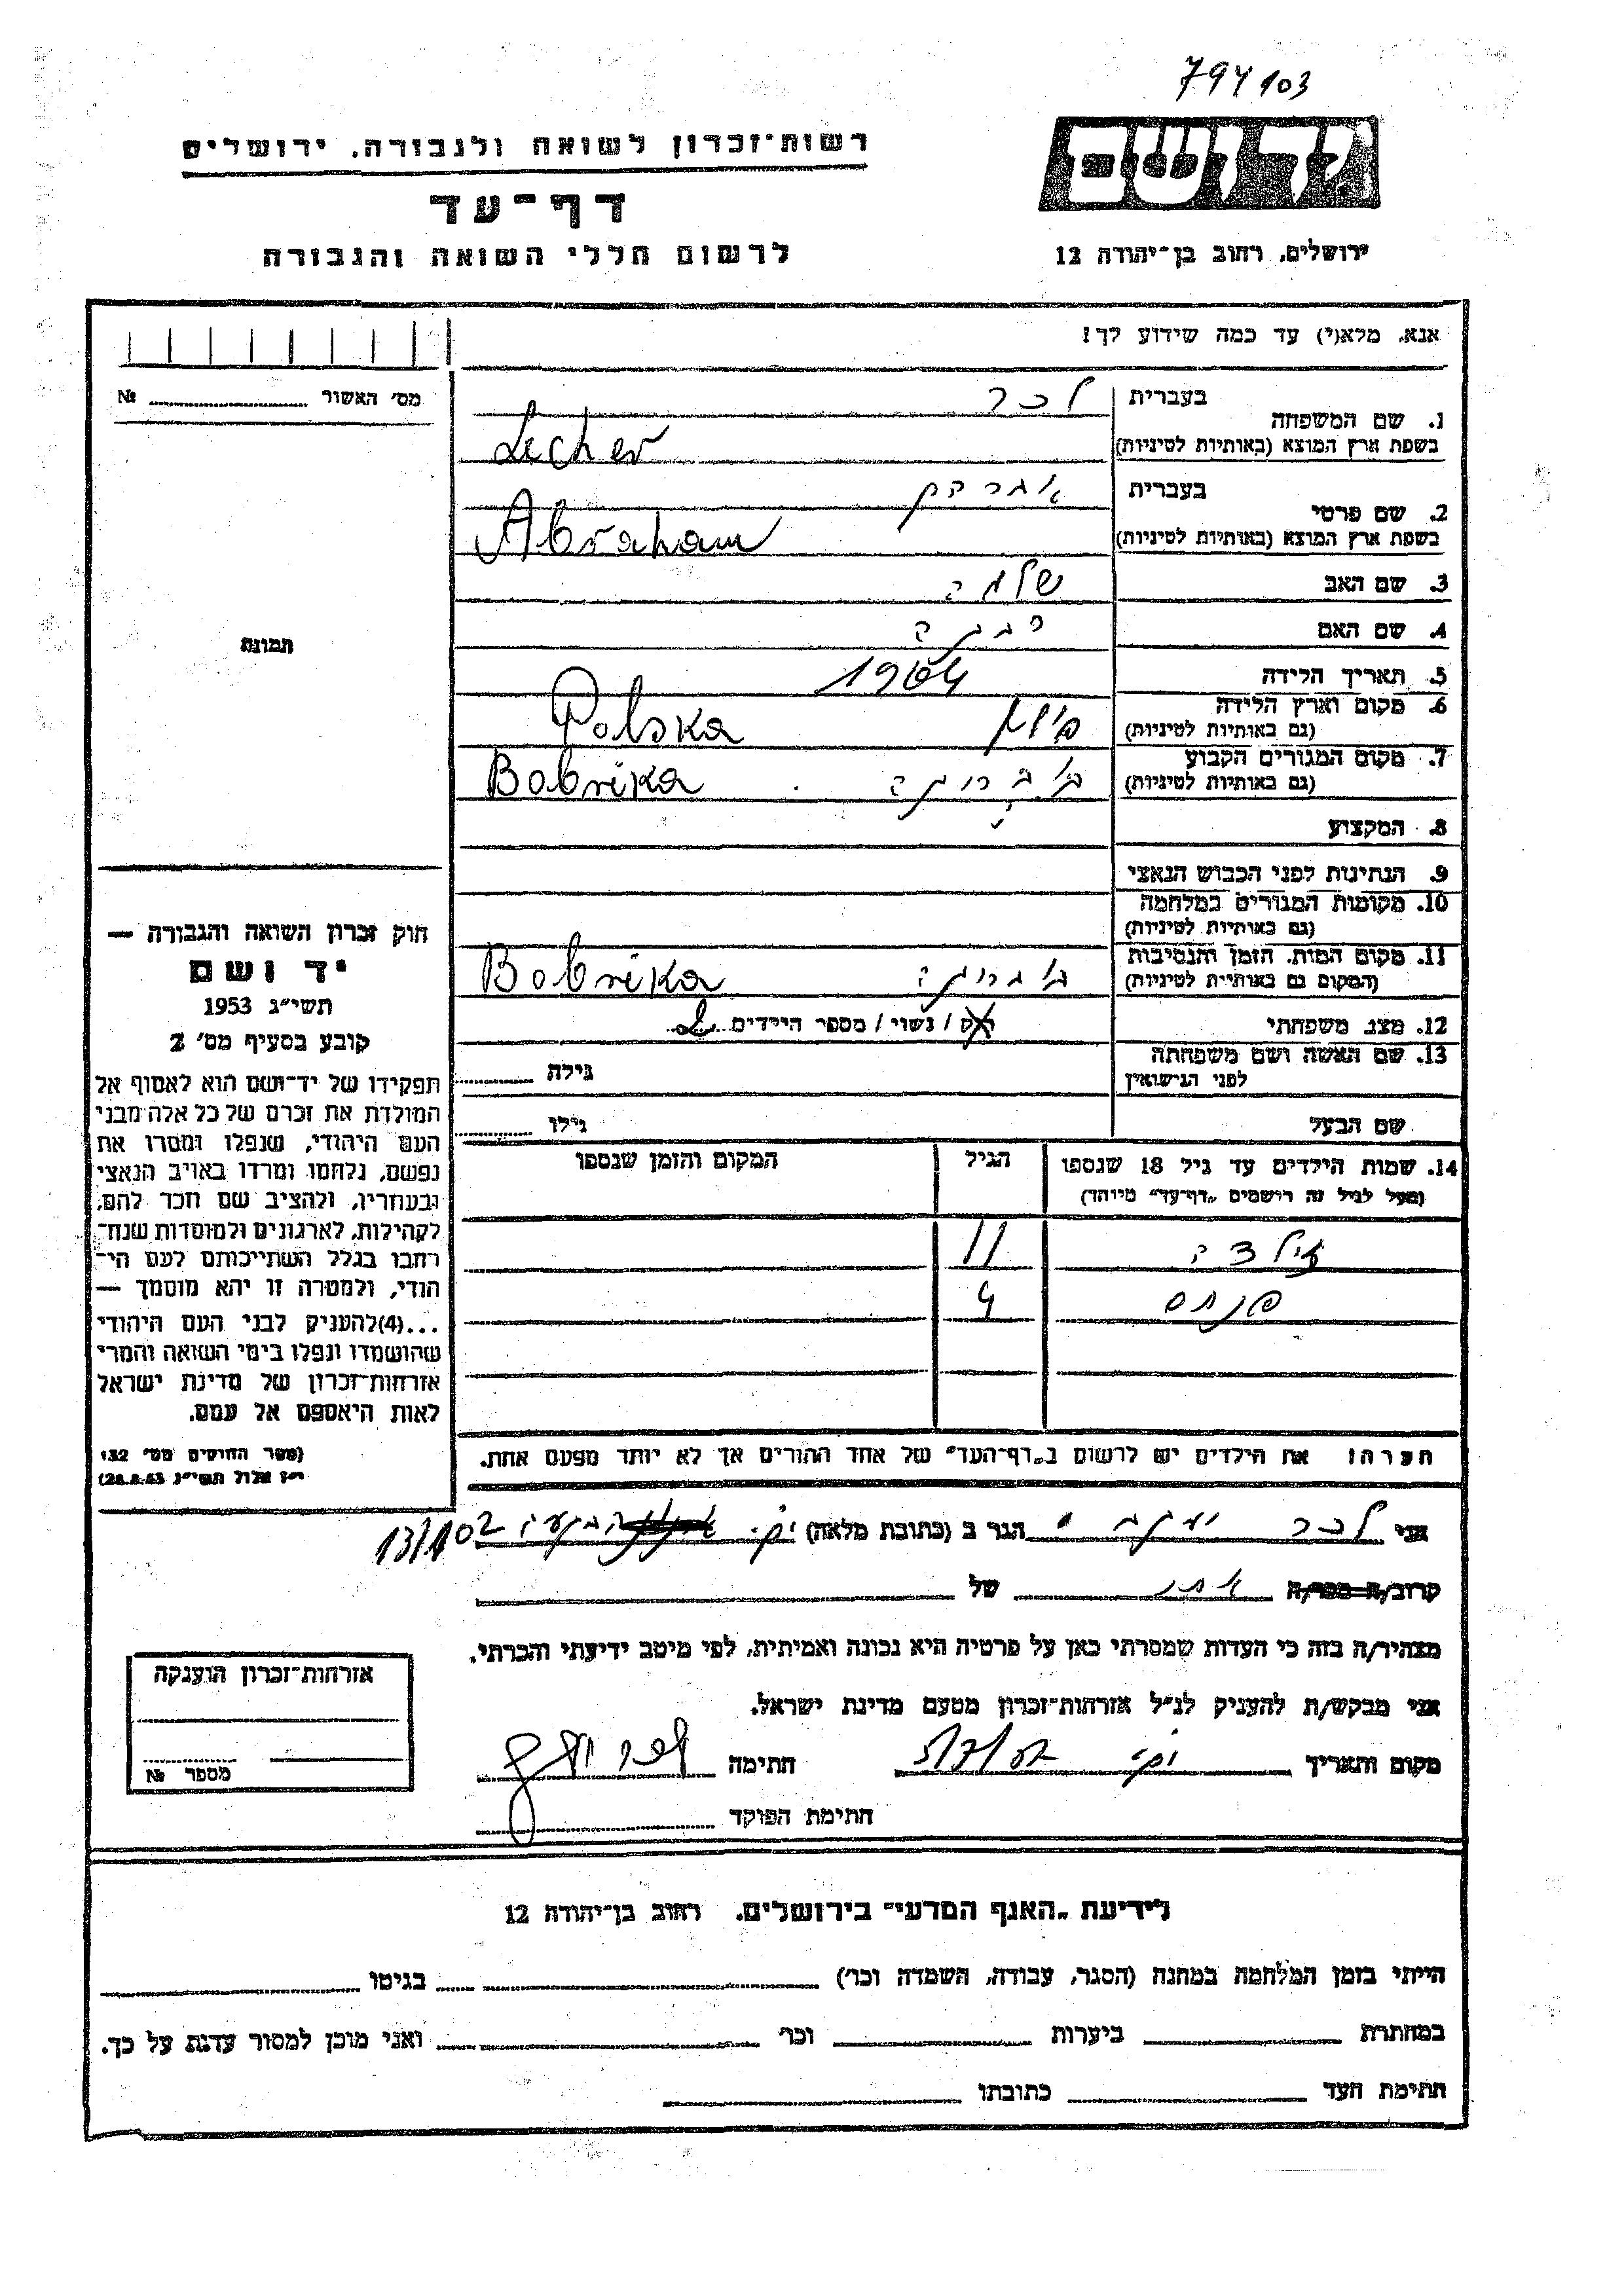 794103
רשות־זכרון לשואה ולגבורה, ירושלים
דף־עד
לרשום חללי השואה והגבורה
ידושם
ירושלים, רחוב בן־יהודה 12
אנא, מלא(י) עד כמה שידוע לך!
מס׳ האשור № 
1. שם המשפחה
בעברית לכר
בשפת ארץ המוצא (באותיות לטיניות) Lecher
2. שם פרטי
בעברית אברהם
בשפת ארץ המוצא (באותיות לטיניות) Abraham
3. שם האב שלמה
4. שם האם רבקה
תמונה
5. תאריך הלידה 1904
6. מקום וארץ הלידה
(גם באותיות לטיניות) פולין Polska
7. מקום המגורים הקבוע
(גם באותיות לטיניות) בוברויקה Bobrika
8. המקצוע
9. הנתינות לפני הכבוש הנאצי
10. מקומות המגורים במלחמה
(גם באותיות לטיניות)
11. מקום המות, הזמן והנסיבות
(המקום גם באותיות לטיניות) בוברויקה Bobrika
12. מצב משפחתי רוק / נשוי / מספר הילדים 2
13. שם האשה ושם משפחתה
לפני הנישואין
גילה
שם הבעל גילו
14. שמות הילדים עד גיל 18 שנספו
(מעל לגיל זה רושמים „דף־עד״ מיוחד)
הגיל
המקום והזמן שנספו
11
פנחס 9
הערה: את הילדים יש לרשום ב„דף־העד״ של אחד ההורים אך לא יותר מפעם אחת.
חוק זכרון השואה והגבורה —
יד ושם
תשי״ג 1953
קובע בסעיף מס׳ 2
תפקידו של יד־ושם הוא לאסוף אל
המולדת את זכרם של כל אלה מבני
העם היהודי, שנפלו ומסרו את
נפשם, נלחמו ומרדו באויב הנאצי
ובעוזריו, ולהציב שם וזכר להם,
לקהילות, לארגונים ולמוסדות שנח־
רבו בגלל השתייכותם לעם הי־
הודי, ולמטרה זו יהא מוסמך —
...(4)להעניק לבני העם היהודי
שהושמדו ונפלו בימי השואה והמרי
אזרחות־זכרון של מדינת ישראל
לאות היאספם אל עמם.
(ספר החוקים מס׳ 132
י״ז אלול תשי״ג 28.8.53)
אני לכר יעקב הגר ב (כתובת מלאה) 13/102
קרוב/ה מכר/ה של
מצהיר/ה בזה כי העדות שמסרתי כאן על פרטיה היא נכונה ואמיתית, לפי מיטב ידיעתי והכרתי.
אני מבקש/ת להעניק לנ״ל אזרחות־זכרון מטעם מדינת ישראל.
מקום ותאריך חתימה
חתימת הפוקד
אזרחות־זכרון הוענקה
מספר №
לידיעת „האגף המדעי״ בירושלים, רחוב בן־יהודה 12
הייתי בזמן המלחמה במחנה (הסגר, עבודה, השמדה וכו׳) בגיטו
במחתרת ביערות וכו׳ ואני מוכן למסור עדות על כך.
חתימת העד כתובתו